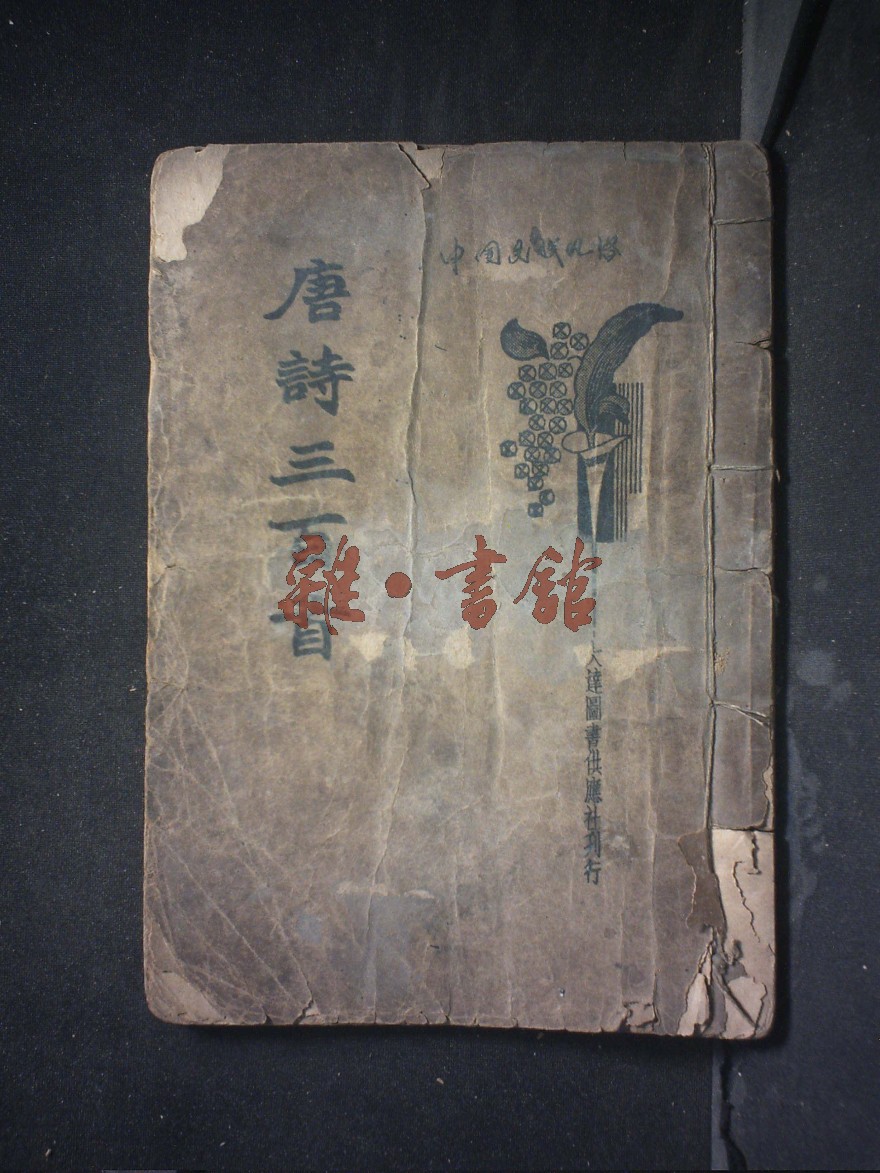 唐詩三百首
中国
大達圖書供應社刊行
雜·書館